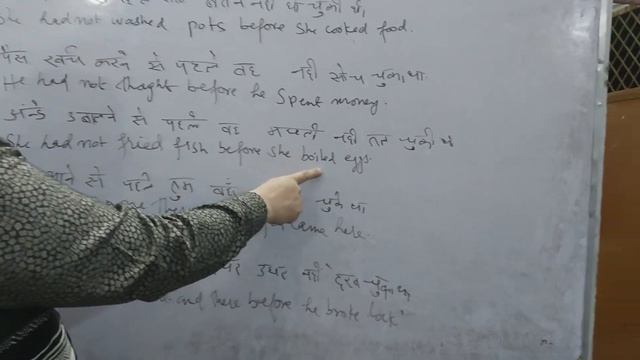 बर्तन नहीं धो चुकी थी
She had not washed pots before She cooked food.
पैसे खर्च करने से पहले वह नहीं सोच चुका था
He had not thaght before he Spent money.
अंडे उबालने से पहले वह मछली नहीं तल चुकी थी
She had not fried fish before she boiled eggs.
आने से पहले तुम वहाँ चुके थे
came here.
उधर नहीं देख चुका था
and there before he broke lock